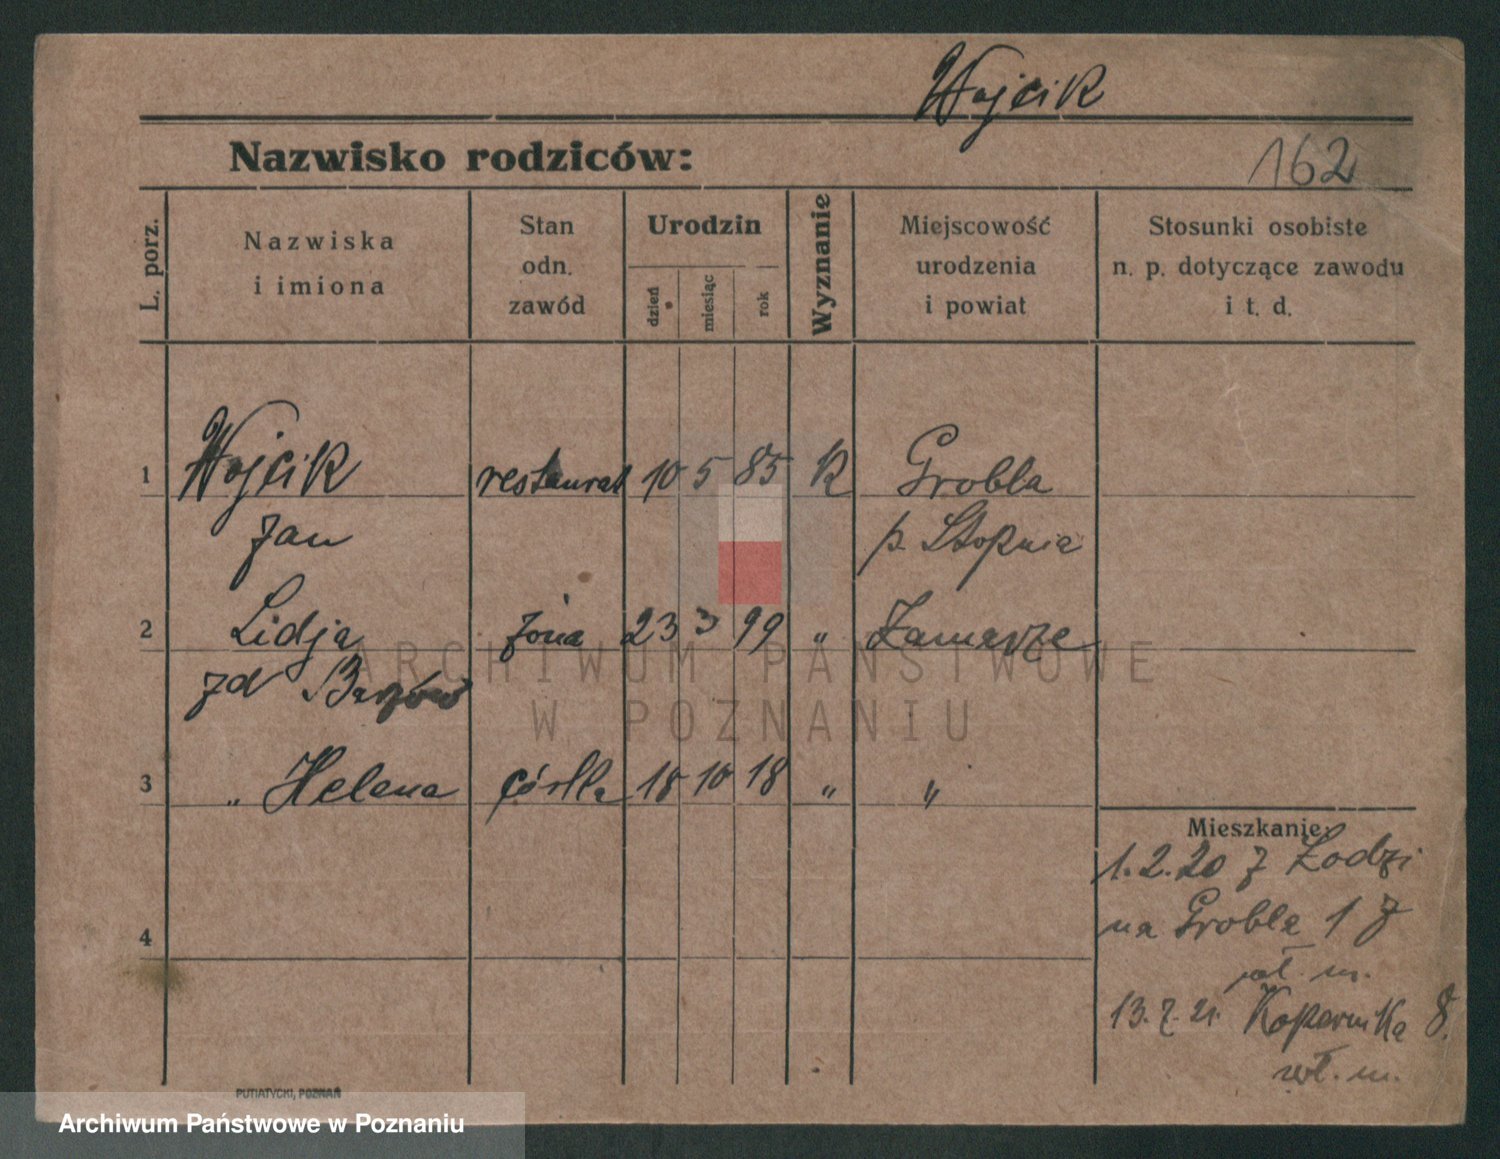 Wojcik
Nazwisko rodziców:
162
L. porz.
Nazwiska
i imiona
Stan
odn.
zawód
Urodzin
dzień
miesiąc
rok
Wyznanie
Miejscowość
urodzenia
i powiat
Stosunki osobiste
n. p. dotyczące zawodu
i t. d.
1 Wojcik restaurat 10 5 85 K Grobla
Jan p. Stopnia
2 Lidja żona 23 3 99 „
zd
3 „ Helena córka 18 10 18 „ „
Mieszkanie:
1.2.20 z Łodzi
na Grobla 1 z
wł. m.
4
13.7.21. Kopernika 8.
wł. m.
PUTIATYCKI, POZNAŃ
ARCHIWUM PAŃSTWOWE
W POZNANIU
Archiwum Państwowe w Poznaniu